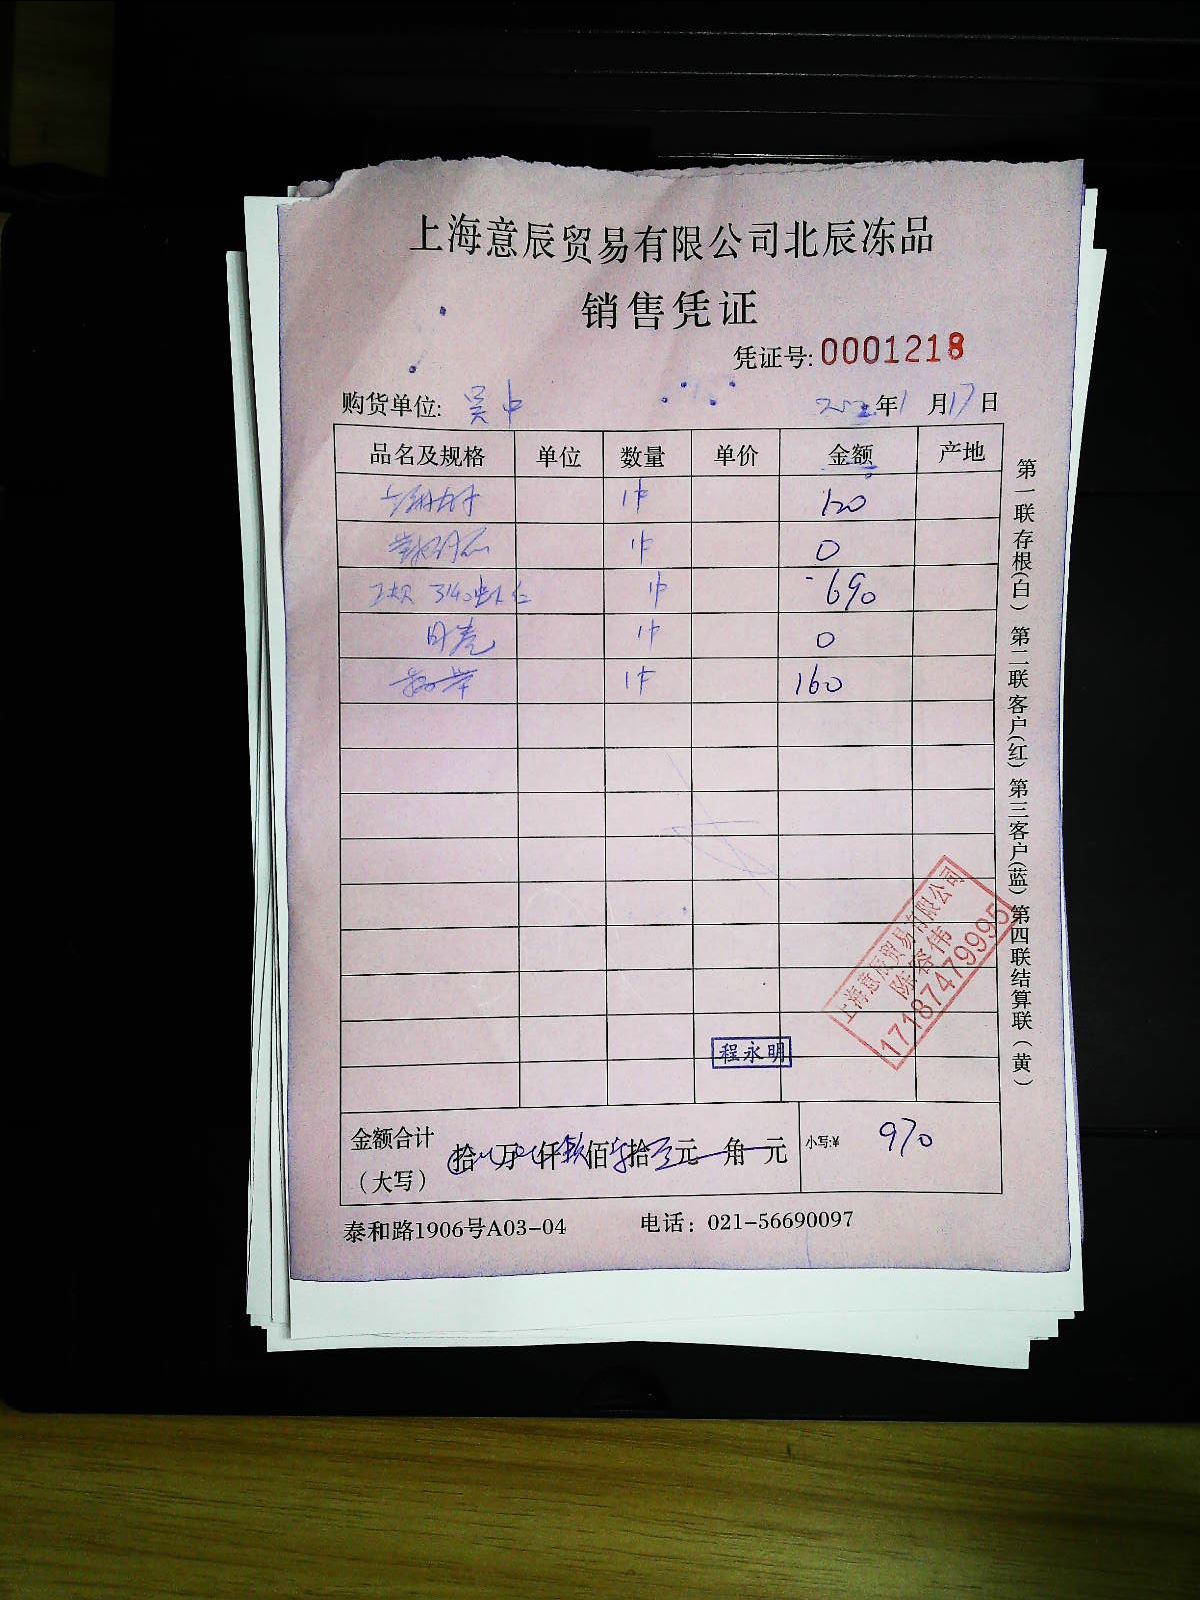 上海意辰贸易有限公司北辰冻品
销售凭证
凭证号:0001218
购货单位: 吴中 年1月17日
品名及规格 单位 数量 单价 金额 产地
1件 120
1件 0
3140虾仁 1件 690
1件 0
1件 160
第一联存根(白) 第二联客户(红) 第三客户(蓝) 第四联结算联(黄)
上海意辰贸易有限公司
陈容伟
17187479995
程永明
金额合计(大写) 拾 万 仟 佰 拾 元 角 元 小写:¥ 970
泰和路1906号A03-04 电话: 021-56690097